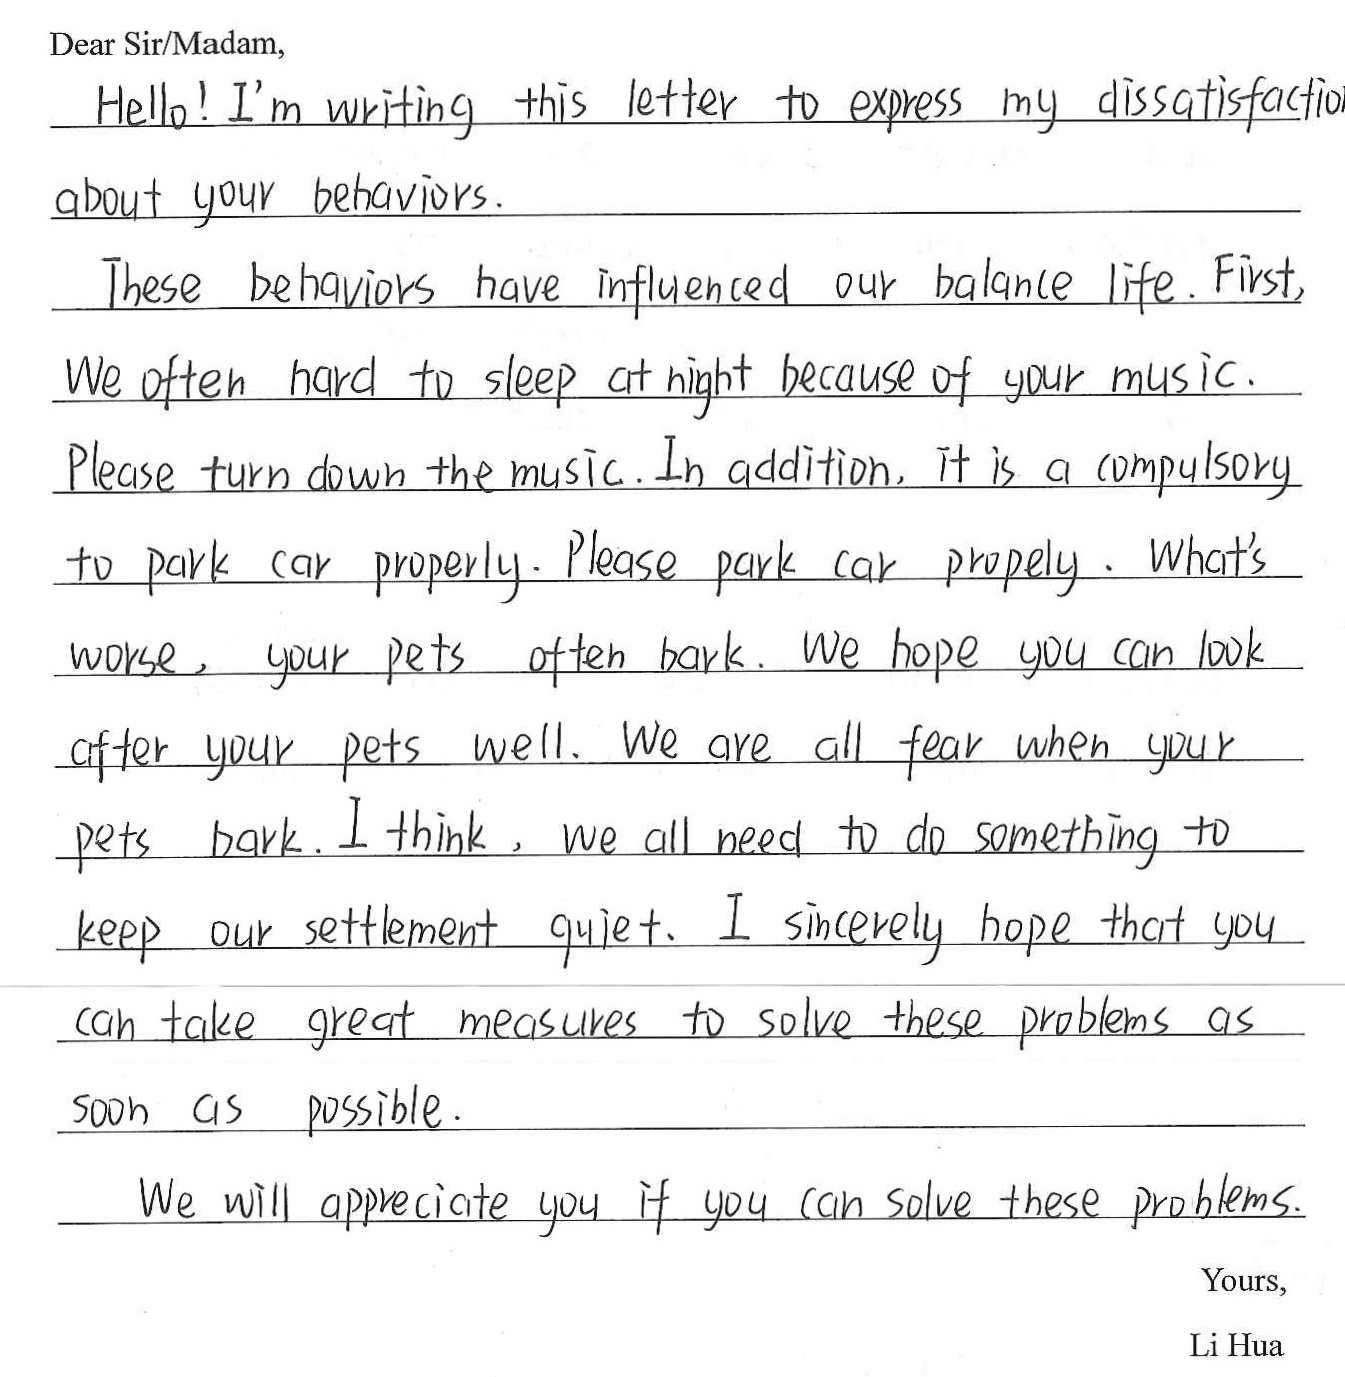 Dear Sir/Madam,
Hello! I'm writing this letter to express my dissatisfaction
about your behaviors.
These behaviors have influenced our balance life. First,
We often hard to sleep at night because of your music.
Please turn down the music. In addition, it is a compulsory
to park car properly. Please park car propely. What's
worse, your pets often bark. We hope you can look
after your pets well. We are all fear when your
pets bark. I think, we all need to do something to
keep our settlement quiet. I sincerely hope that you
can take great measures to solve these problems as
soon as possible.
We will appreciate you if you can solve these problems.
Yours,
Li Hua